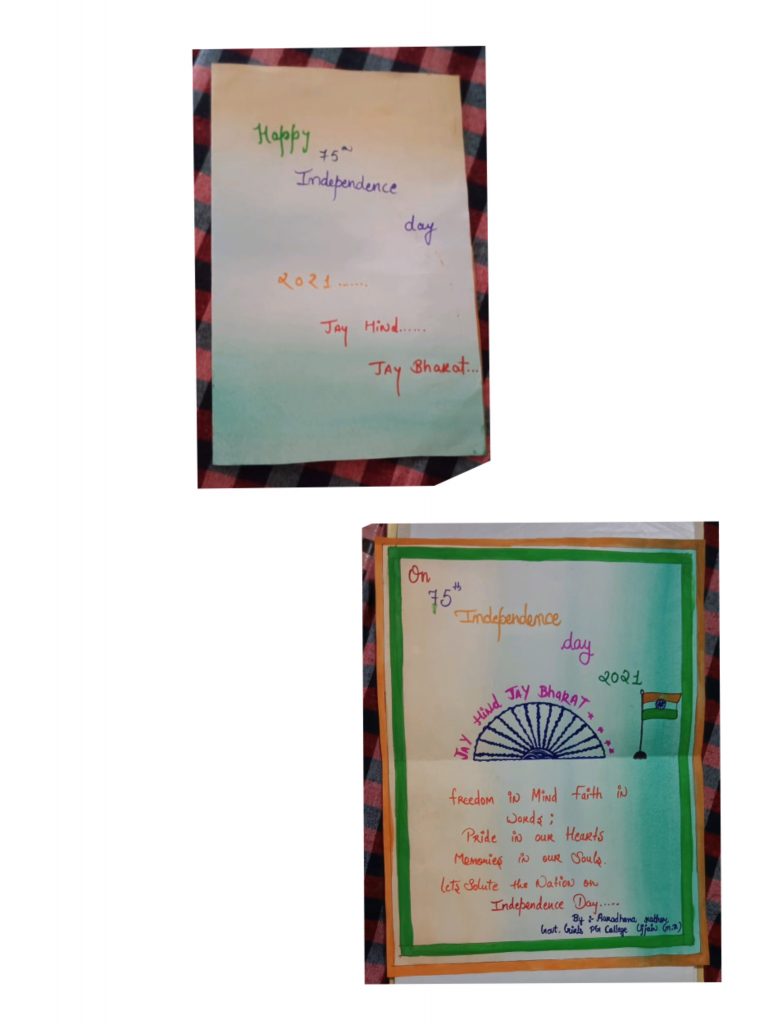 Happy
75th
Independence
day
2021.......
JAY Hind......
JAY Bharat...
On
75th
Independence
day
2021
JAY Hind JAY BHARAT
freedom in Mind Faith in
Words ;
Pride in our Hearts
Memories in our Souls.
Lets Solute the Nation on
Independence Day.....
By :- Aaradhana rathor,
Govt. Girls PG College Ujjain (M.P)